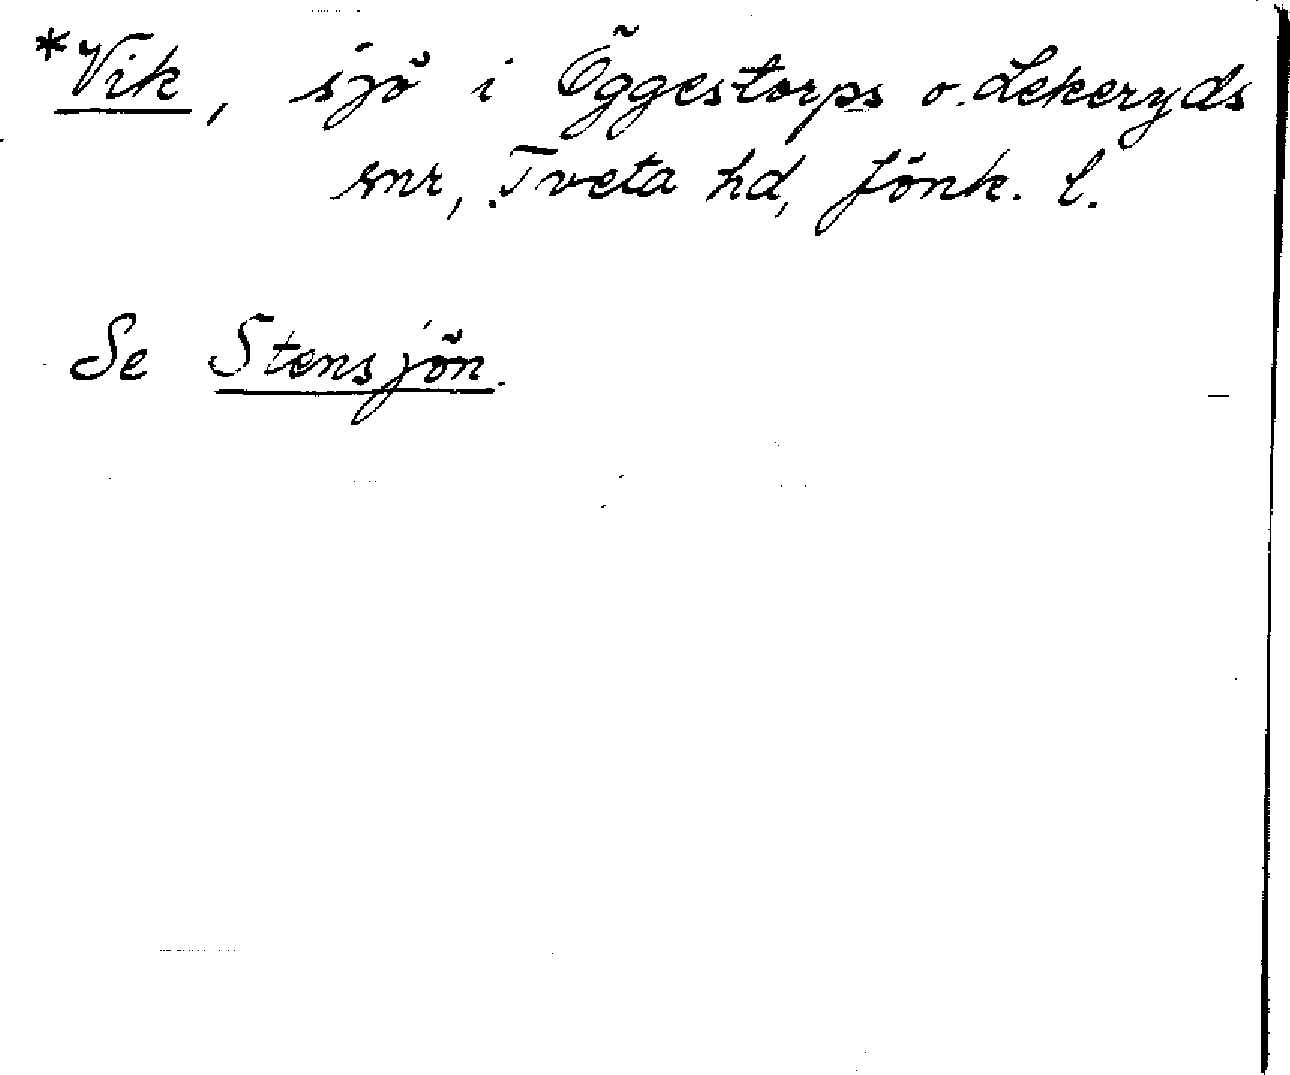 *Vik, sjö i Öggestorps o. Lekeryds
snr, Tveta hd, Jönk. l.
Se Stensjön.